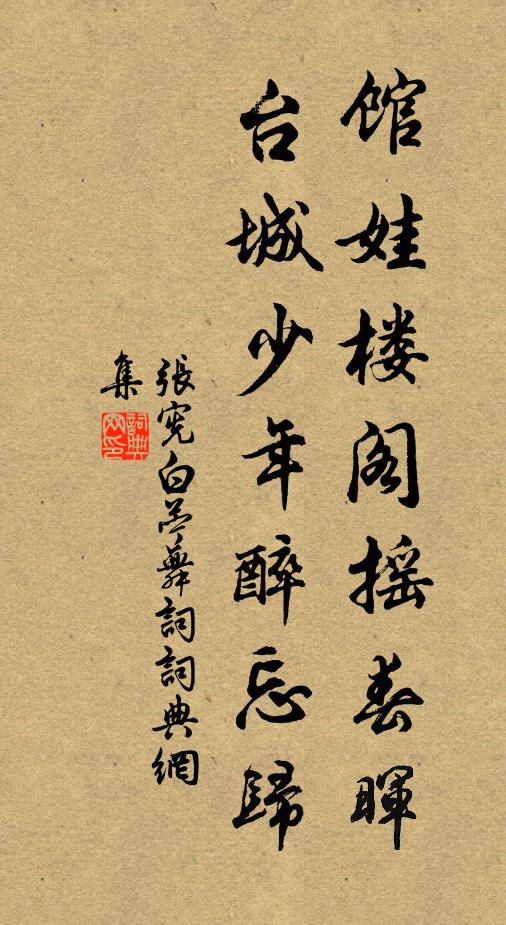 馆娃楼阁摇春暉
台城少年醉忘歸
張宪白苎舞詞詞典網
集
詞典
网印